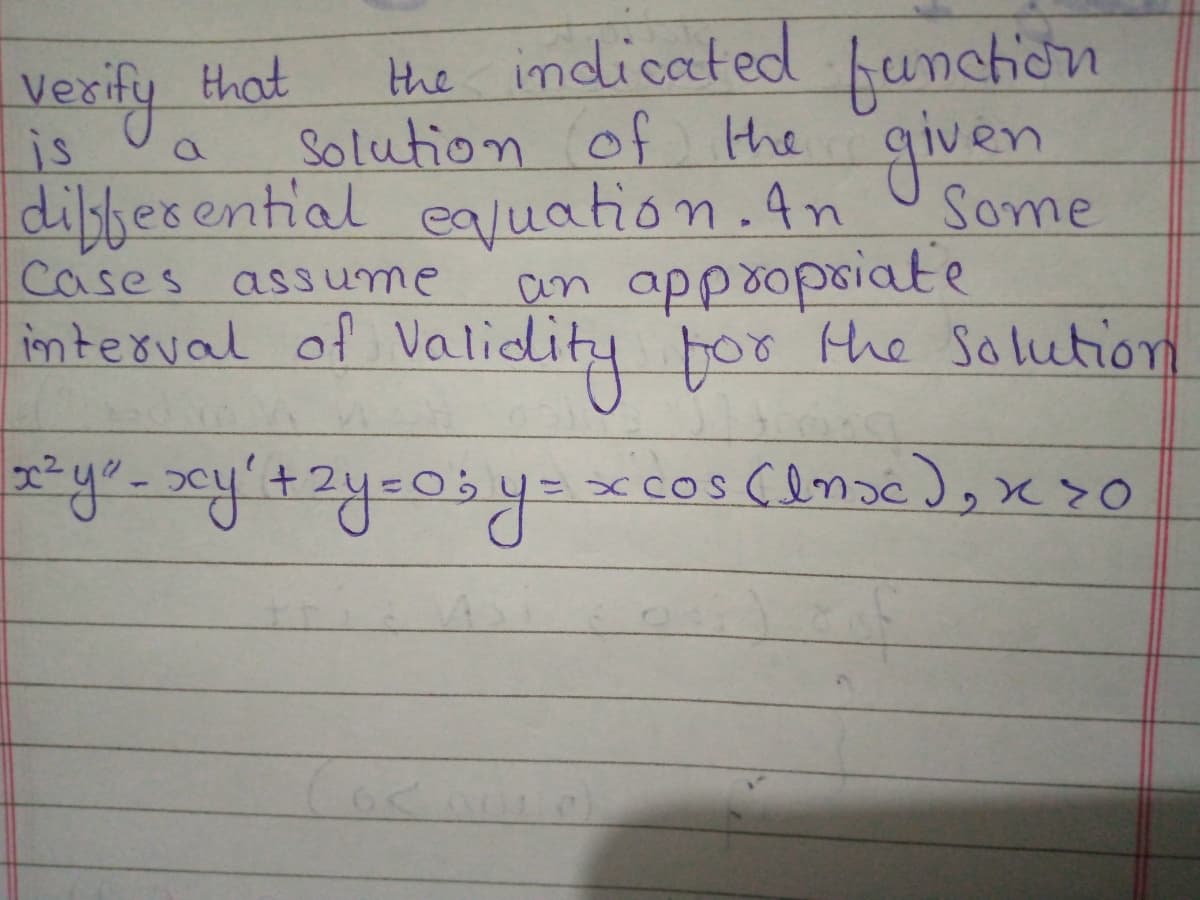 verify that the indicated function
is a solution of the given
differential equation. In some
cases assume an appropriate
interval of validity for the solution
x²y" - xy' + 2y = 0; y = x cos (lnx), x > 0